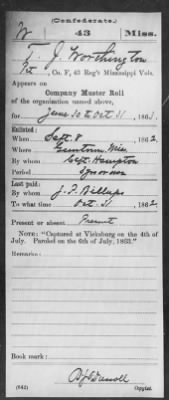 (Confederate.)
W 43 Miss.
T. J. Worthington
Pvt, Co. F, 43 Reg't Mississippi Vols.
Appears on
Company Muster Roll
of the organization named above,
for June 30 to Oct 31, 1863.
Enlisted:
When Sept 8, 1862
Where Guntown, Miss
By whom Capt. Hampton
Period
Last paid:
By whom J. F. Billups
To what time Oct 31, 1862
Present or absent Present
NOTE: "Captured at Vicksburg on the 4th of
July. Paroled on the 6th of July, 1863."
Remarks:
Book mark:
(642) Copyist.